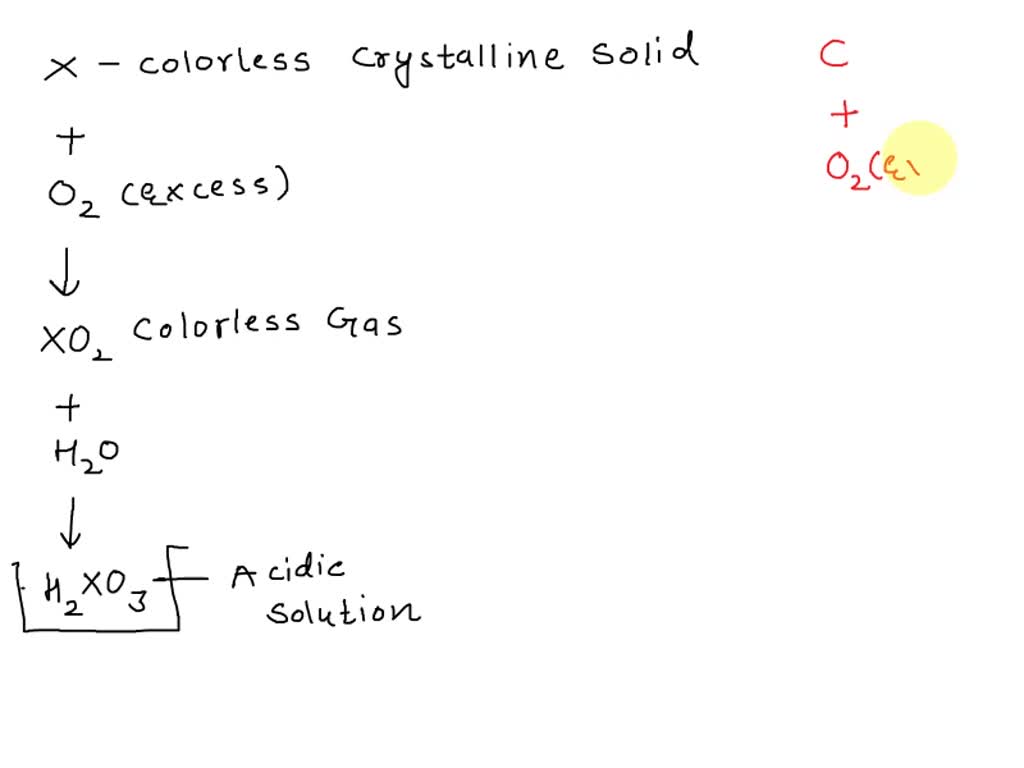 X - colorless crystalline solid
+
O2 (excess)
↓
XO2 colorless Gas
+
H2O
↓
H2XO3 - Acidic
solution
C
+
O2(